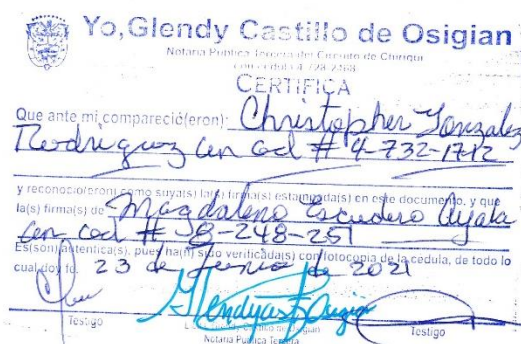 Yo, Glendy Castillo de Osigian
Notaria Pública Tercera del Circuito de Chiriquí
con cédula 4-728-2468
CERTIFICA
Que ante mi compareció(eron): Christopher Gonzalez
Rodriguez con ced # 4-732-1712
y reconoció(eron) como suya(s) la(s) firma(s) estampada(s) en este documento, y que
la(s) firma(s) de Magdaleno Escudero Ayala
con ced # 8-248-251
Es(son) autentica(s), pues ha(n) sido verificada(s) con fotocopia de la cedula, de todo lo
cual doy fe. 23 de Junio de 2021
Testigo
Notaria Pública Tercera
Testigo